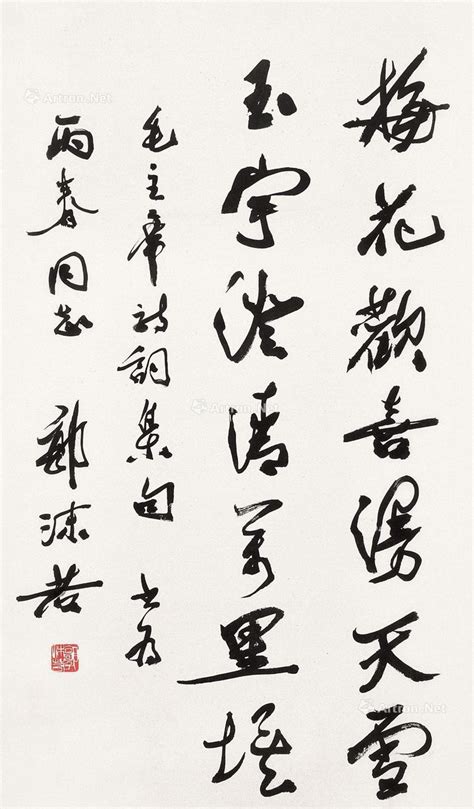 梅花歡喜漫天雪
玉宇澄清万里埃
毛主席詩詞集句 書為
雨春同志 郭沫若
Artron.Net
Artron.Net
Artron.Net
Artron.Net